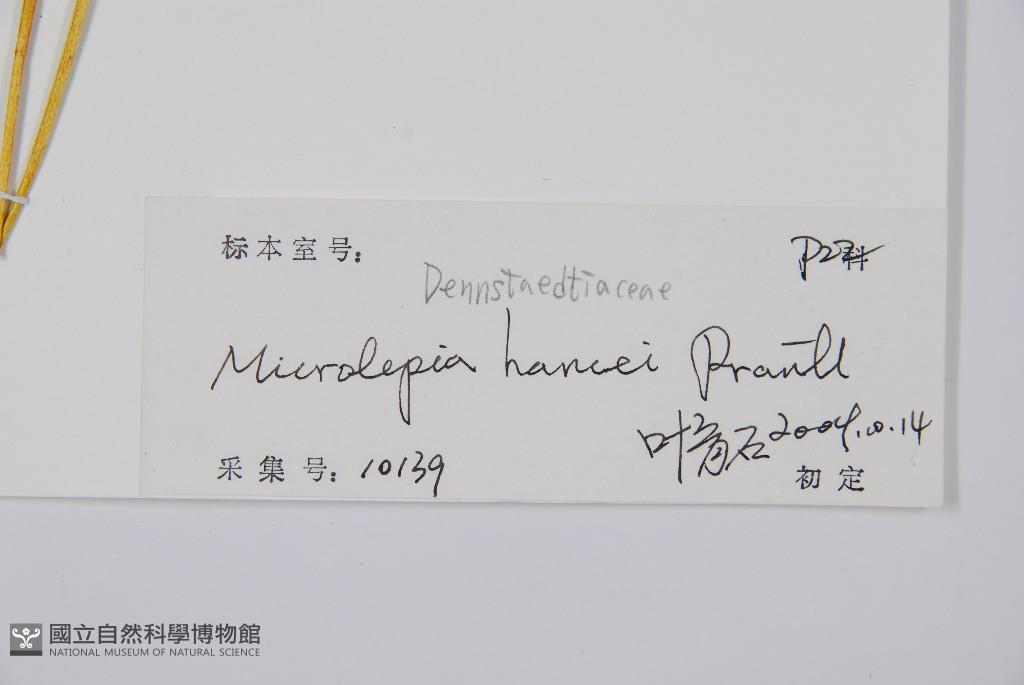 标本室号:
P22科
Dennstaedtiaceae
Microlepia hancei Prantl
叶育石 2004.10.14
采集号: 10139
初定
國立自然科學博物館
NATIONAL MUSEUM OF NATURAL SCIENCE